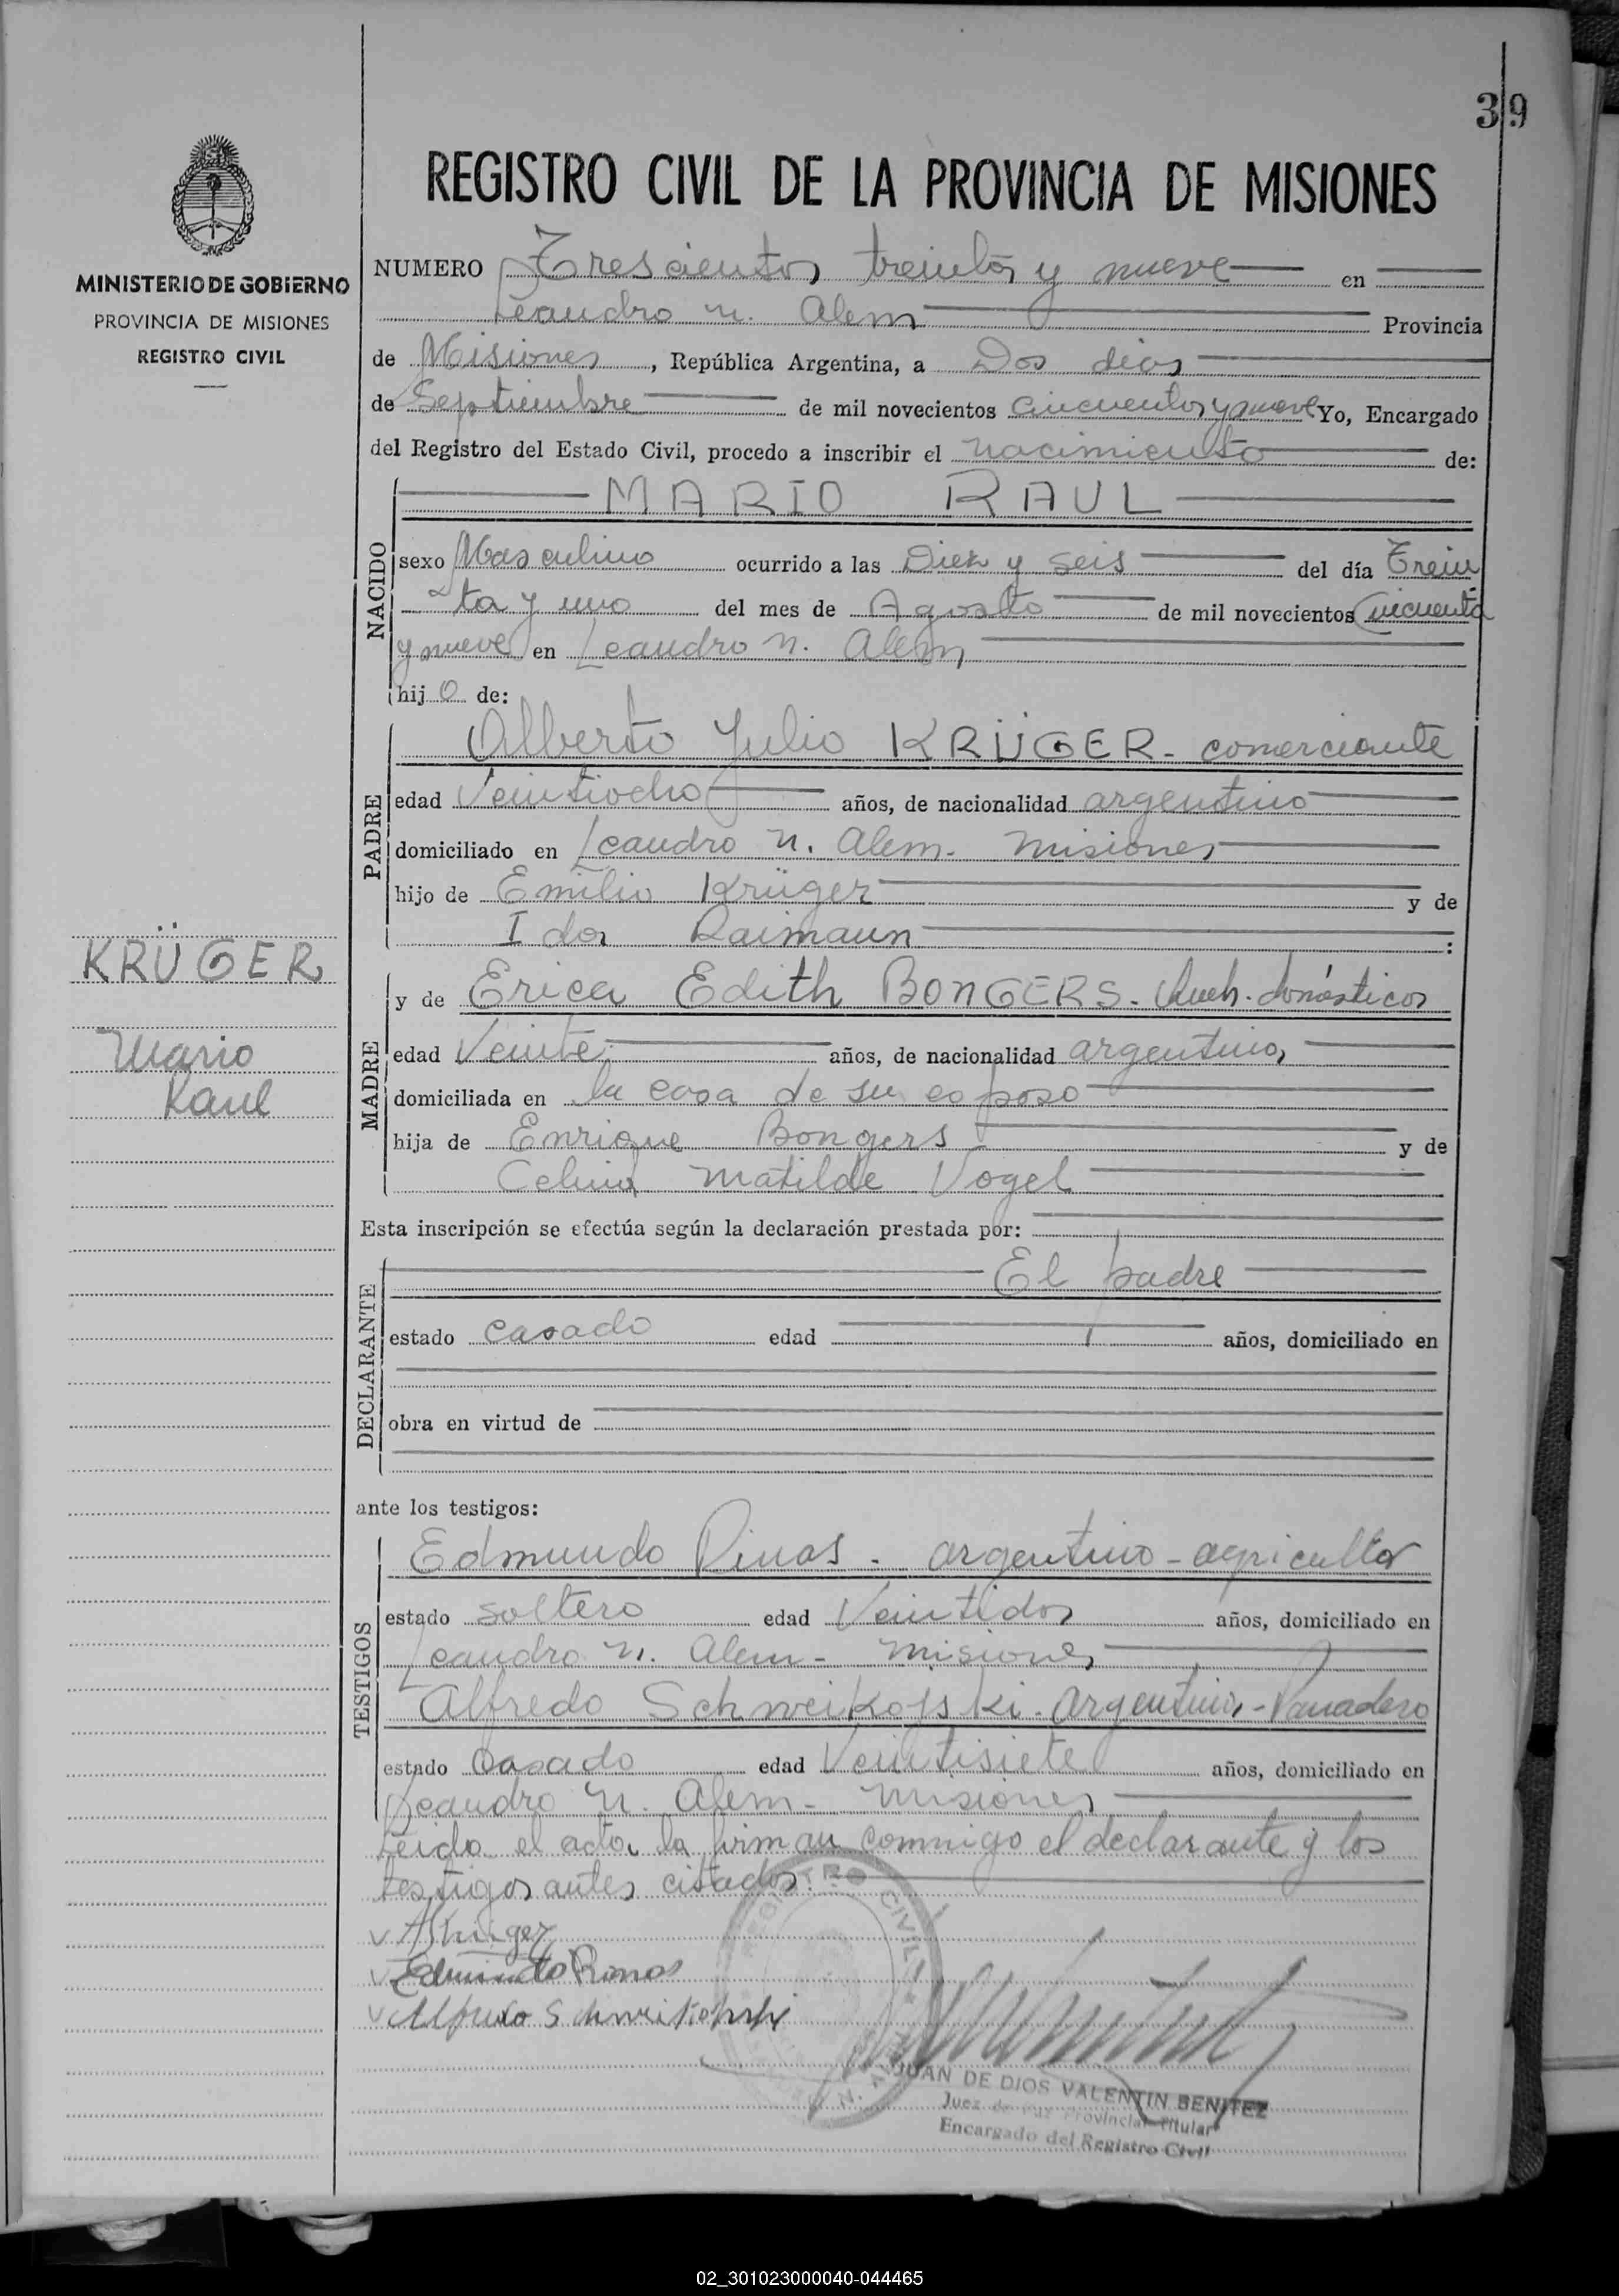 39
REGISTRO CIVIL DE LA PROVINCIA DE MISIONES
MINISTERIO DE GOBIERNO
PROVINCIA DE MISIONES
REGISTRO CIVIL
NUMERO Trescientos treinta y nueve en
Leandro N. Alem Provincia
de Misiones, República Argentina, a Dos dias
de Septiembre de mil novecientos Cincuenta y nueve Yo, Encargado
del Registro del Estado Civil, procedo a inscribir el nacimiento de:
NACIDO
MARIO RAUL
sexo Masculino ocurrido a las Diez y seis del día Trein
ta y uno del mes de Agosto de mil novecientos Cincuenta
y nueve en Leandro N. Alem
hij o de:
PADRE
Alberto Julio KRÜGER - comerciante
edad Veintiocho años, de nacionalidad argentino
domiciliado en Leandro N. Alem - Misiones
hijo de Emilio Krüger y de
Ida Raimann :
KRÜGER
Mario
Raul
MADRE
y de Erica Edith BONGERS - Queh. domésticos
edad Veinte años, de nacionalidad argentina
domiciliada en la casa de su esposo
hija de Enrique Bongers y de
Celina Matilde Vogel
Esta inscripción se efectúa según la declaración prestada por:
DECLARANTE
El padre
estado casado edad años, domiciliado en
obra en virtud de
ante los testigos:
TESTIGOS
Edmundo Pinas - argentino - agricultor
estado soltero edad Veintidos años, domiciliado en
Leandro N. Alem - Misiones
Alfredo Schweikofski - Argentino - Panadero
estado Casado edad Veintisiete años, domiciliado en
Leandro N. Alem - Misiones
Leida el acta, la firman conmigo el declarante y los
testigos antes citados.
AKrüger
Edmundo
Alfredo
REGISTRO CIVIL
JUAN DE DIOS VALENTIN BENITEZ
Juez de Paz Provincial Titular
Encargado del Registro Civil
02_301023000040-044465